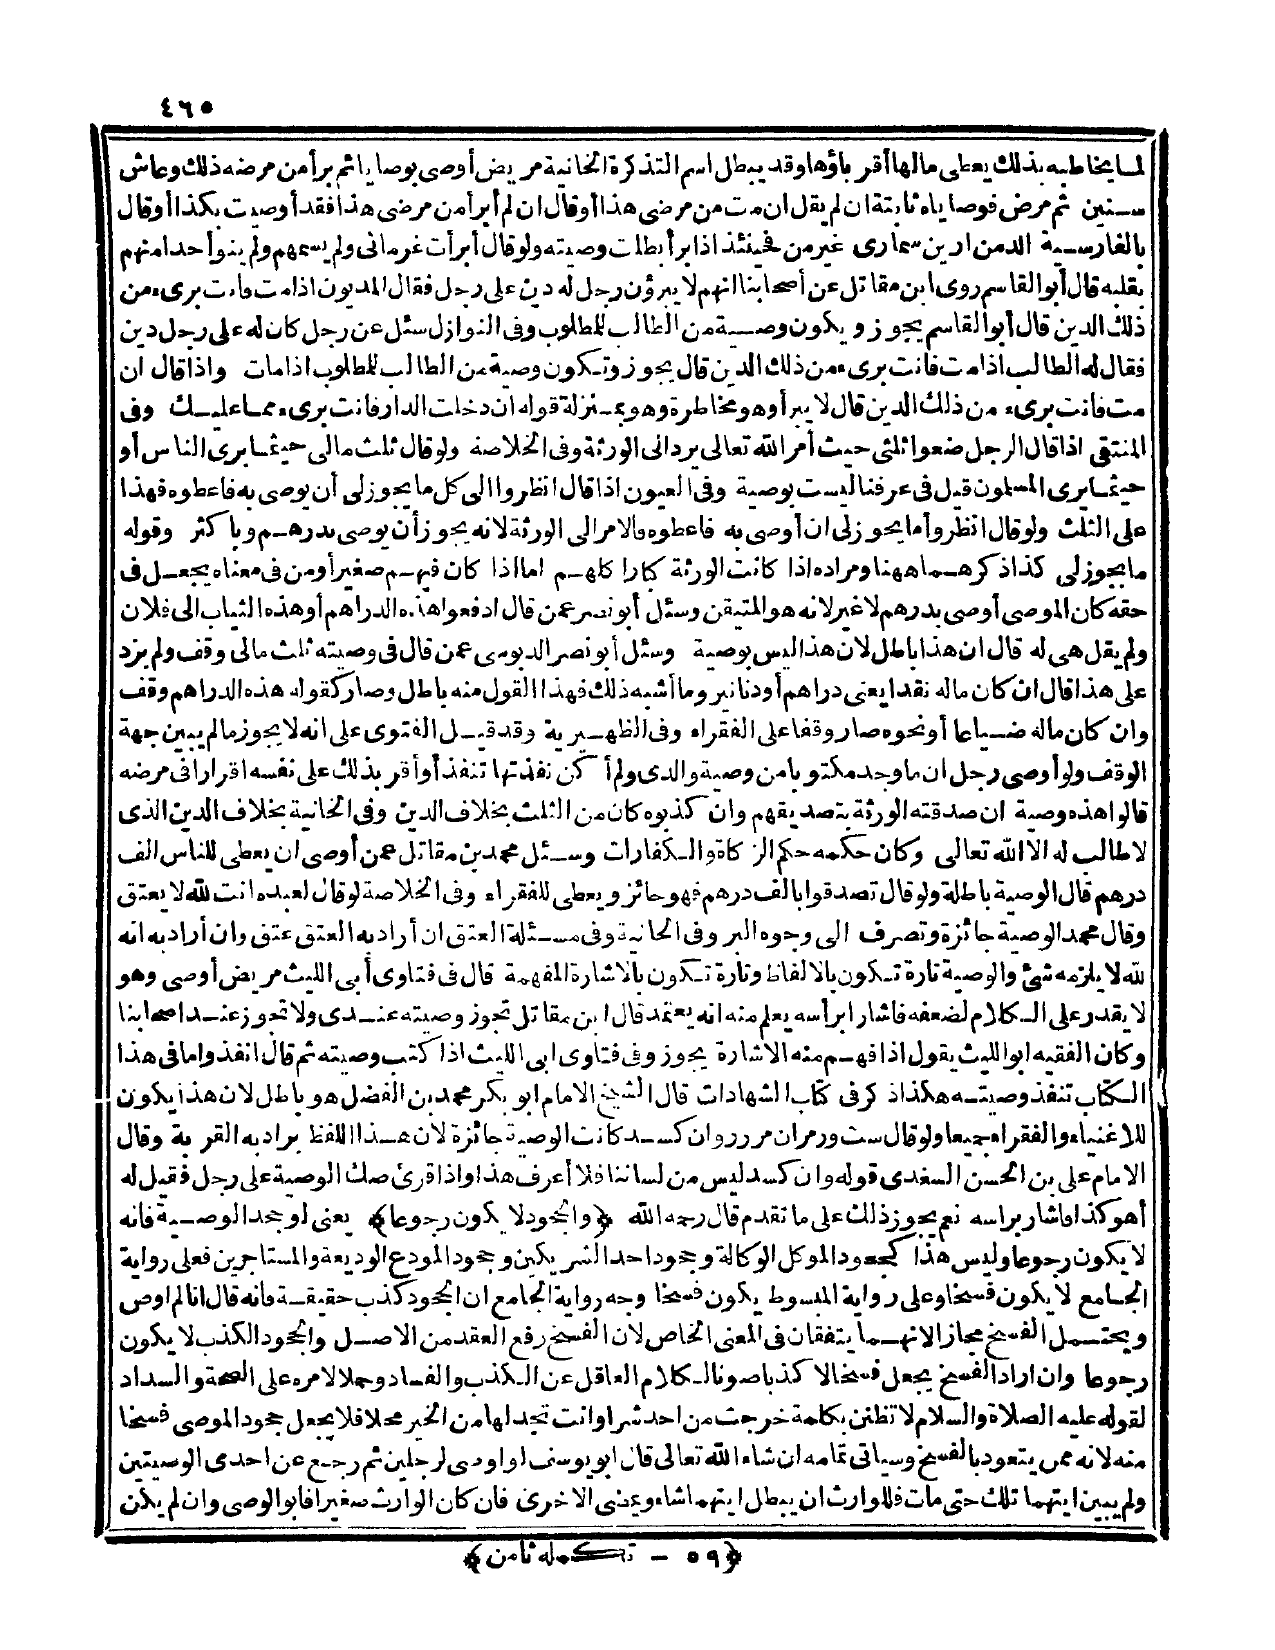 ٤٦٥
لما يخاطبه بذلك يعطى مالها أقرباؤها وقد يبطل اسم التذكرة الخانية مريض أوصى بوصايا ثم برأ من مرضه ذلك وعاش
سنين ثم مرض فوصاياه ثابتة ان لم يقل ان مت من مرضى هذا أو قال ان لم أبرأ من مرضى هذا فقد أوصيت بكذا أو قال
بالفارسية غير من فحينئذ اذا برأ بطلت وصيته ولو قال أبرأت غرمائى ولم يسمهم ولم ينو أحدا منهم
بقلبه قال أبو القاسم روى ابن مقاتل عن أصحابنا انهم لا يبرؤن رجل له دين على رجل فقال المديون اذا مت فأنت برىء من
ذلك الدين قال أبو القاسم يجوز ويكون وصية من الطالب للمطلوب وفى النوازل سئل عن رجل كان له على رجل دين
فقال له الطالب اذا مت فانت برىء من ذلك الدين قال يجوز وتكون وصية من الطالب للمطلوب اذا مات واذا قال ان
مت فانت برىء من ذلك الدين قال لا يبرأ وهو مخاطرة وهو بمنزلة قوله ان دخلت الدار فانت برىء مما عليك وفى
المنتقى اذا قال الرجل ضعوا ثلثى حيث أمر الله تعالى يرد الى الورثة وفى الخلاصة ولو قال ثلث مالى حيثما يرى الناس أو
حيثما يرى المسلمون قيل فى عرفنا ليست بوصية وفى العيون اذا قال انظروا الى كل ما يجوز لى أن يوصى به فاعطوه فهذا
على الثلث ولو قال انظروا ما يجوز لى ان أوصى به فاعطوه فالامر الى الورثة لانه يجوز أن يوصى بدرهم وبأكثر وقوله
ما يجوز لى كذا ذكرهما ههنا ومراده اذا كانت الورثة كبارا كلهم اما اذا كان فيهم صغير أو من فى معناه يجعل فى
حقه كان الموصى أوصى بدرهم لا غير لانه هو المتيقن وسئل أبو نصر عمن قال ادفعوا هذه الدراهم أو هذه الثياب الى فلان
ولم يقل هى له قال ان هذا باطل لان هذا ليس بوصية وسئل أبو نصر الدبوسى عمن قال فى وصيته ثلث مالى وقف ولم يزد
على هذا قال ان كان ماله نقدا يعنى دراهم أو دنانير وما أشبه ذلك فهذا القول منه باطل وصار كقوله هذه الدراهم وقف
وان كان ماله ضياعا أو نحوه صار وقفا على الفقراء وفى الظهيرية وقد قيل الفتوى على انه لا يجوز ما لم يبين جهة
الوقف ولو أوصى رجل ان ما وجد مكتوبا من وصية والدى ولم أكن نفذتها تنفذ أو أقر بذلك على نفسه اقرارا فى مرضه
قالوا هذه وصية ان صدقته الورثة بتصديقهم وان كذبوه كان من الثلث بخلاف الدين وفى الخانية بخلاف الدين الذى
لا طالب له الا الله تعالى وكان حكمه حكم الزكاة والكفارات وسئل محمد بن مقاتل عمن أوصى ان يعطى للناس الف
درهم قال الوصية باطلة ولو قال تصدقوا بالف درهم فهو جائز ويعطى للفقراء وفى الخلاصة لو قال لعبده انت لله لا يعتق
وقال محمد الوصية جائزة وتصرف الى وجوه البر وفى الخانية وفى مسئلة العتق ان أراد به العتق عتق وان أراد به انه
لله لا يلزمه شئ والوصية تارة تكون بالالفاظ وتارة تكون بالاشارة المفهمة قال فى فتاوى أبى الليث مريض أوصى وهو
لا يقدر على الكلام لضعفه فاشار برأسه يعلم منه انه يعتمد قال ابن مقاتل تجوز وصيته عندى ولا تجوز عند اصحابنا
وكان الفقيه ابو الليث يقول اذا فهم منه الاشارة يجوز وفى فتاوى ابى الليث اذا كتب وصيته ثم قال انفذوا ما فى هذا
الكتاب تنفذ وصيته هكذا ذكر فى كتاب الشهادات قال الشيخ الامام ابو بكر محمد بن الفضل هو باطل لان هذا يكون
للاغنياء والفقراء جميعا ولو قال وان كسد كانت الوصية جائزة لان هذا اللفظ يراد به القربة وقال
الامام على بن الحسن السغدى قوله وان كسد ليس من لساننا فلا أعرف هذا واذا قرئ صك الوصية على رجل فقيل له
أهو كذا فاشار براسه نعم يجوز ذلك على ما تقدم قال رحمه الله ﴿والجحود لا يكون رجوعا﴾ يعنى لو جحد الوصية فانه
لا يكون رجوعا وليس هذا كجحود الموكل الوكالة وجحود احد الشريكين وجحود المودع الوديعة والمستاجرين فعلى رواية
الجامع لا يكون فسخا وعلى رواية المبسوط يكون فسخا وجه رواية الجامع ان الجحود كذب حقيقة فانه قال انا لم اوص
ويحتمل الفسخ مجازا لانهما يتفقان فى المعنى الخاص لان الفسخ رفع العقد من الاصل والجحود الكذب لا يكون
رجوعا وان اراد الفسخ يجعل فسخا لا كذبا صونا لكلام العاقل عن الكذب والفساد وحملا لامره على الصحة والسداد
لقوله عليه الصلاة والسلام لا تظنن بكلمة خرجت من احد شرا وانت تجد لها من الخير محملا فلا يجعل جحود الموصى فسخا
منه لانه ممن يتعود بالفسخ وسياتى تمامه ان شاء الله تعالى قال ابو يوسف لو اوصى لرجلين ثم رجع عن احدى الوصيتين
ولم يبين ايتهما تلك حتى مات فللوارث ان يبطل ايتهما شاء ويمضى الاخرى فان كان الوارث صغيرا فابو الوصى وان لم يكن
﴿٥٩ – تكمله ثامن﴾